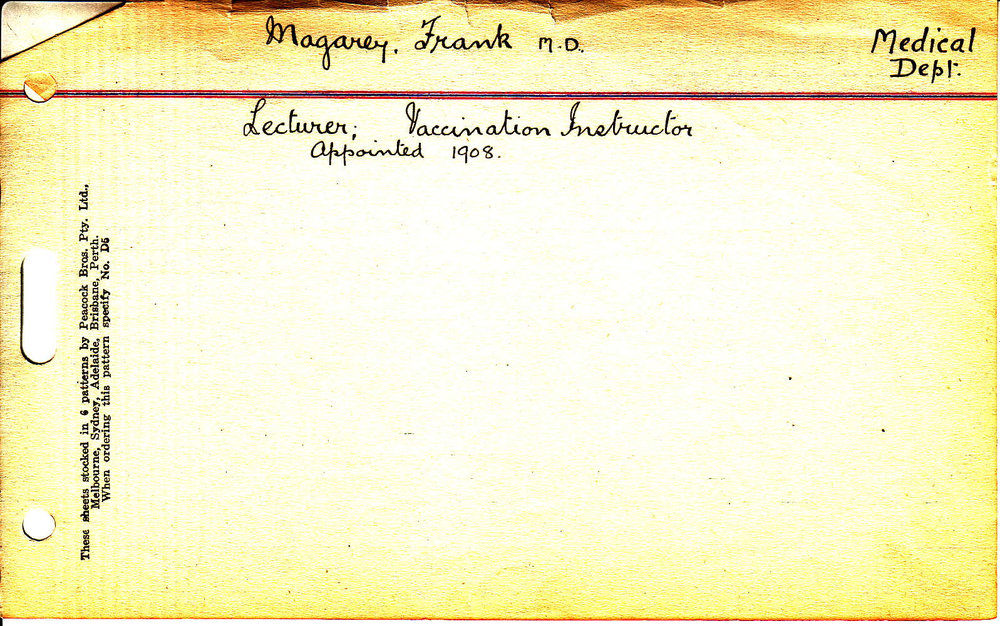 Magarey, Frank M.D.
Medical
Dept.
Lecturer; Vaccination Instructor
Appointed 1908.
These sheets stocked in 6 patterns by Peacock Bros. Pty. Ltd.,
Melbourne, Sydney, Adelaide, Brisbane, Perth.
When ordering this pattern specify No. D6